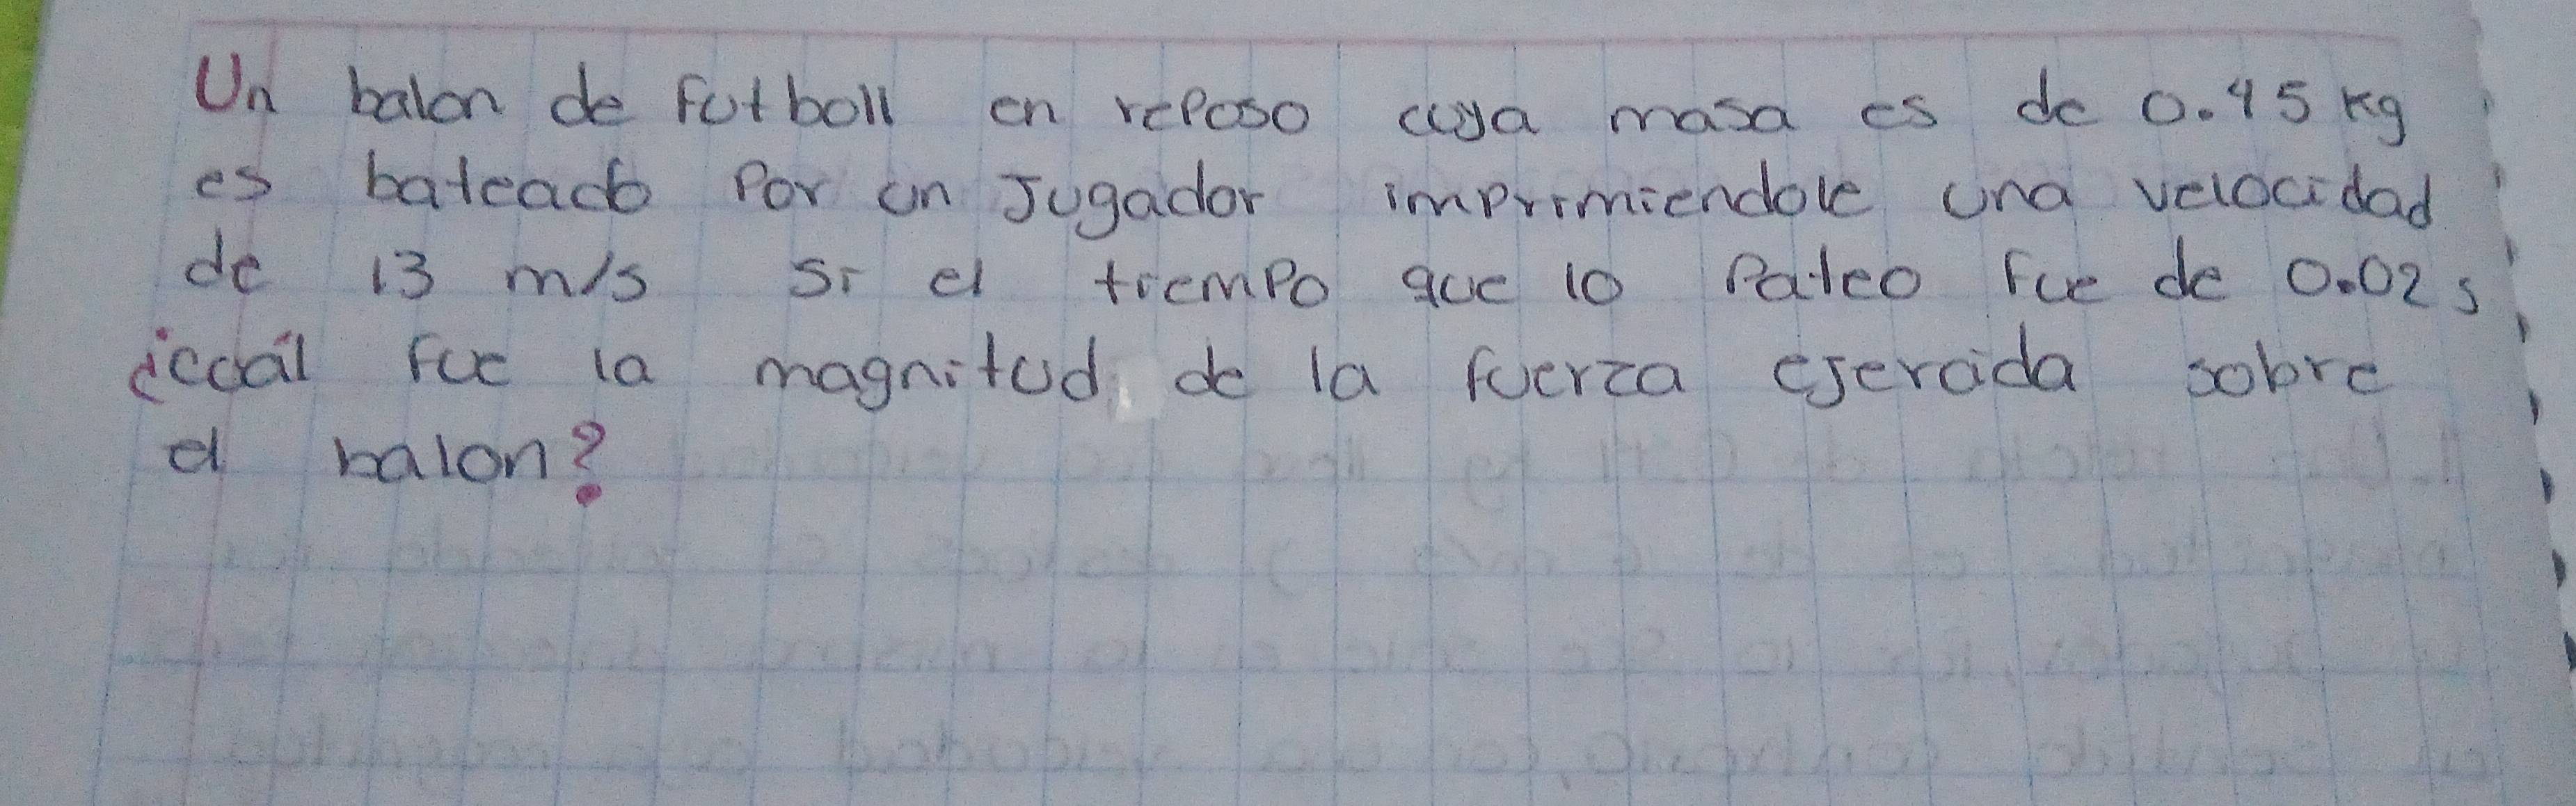 Un balon de futboll en reposo cuya masa es de 0.45 kg
es bateado por un Jugador imprimiendole una velocidad
de 13 m/s si el tiempo que lo pateo fue de 0.02 s
¿cuál fue la magnitud de la fuerza ejercida sobre
el balon?